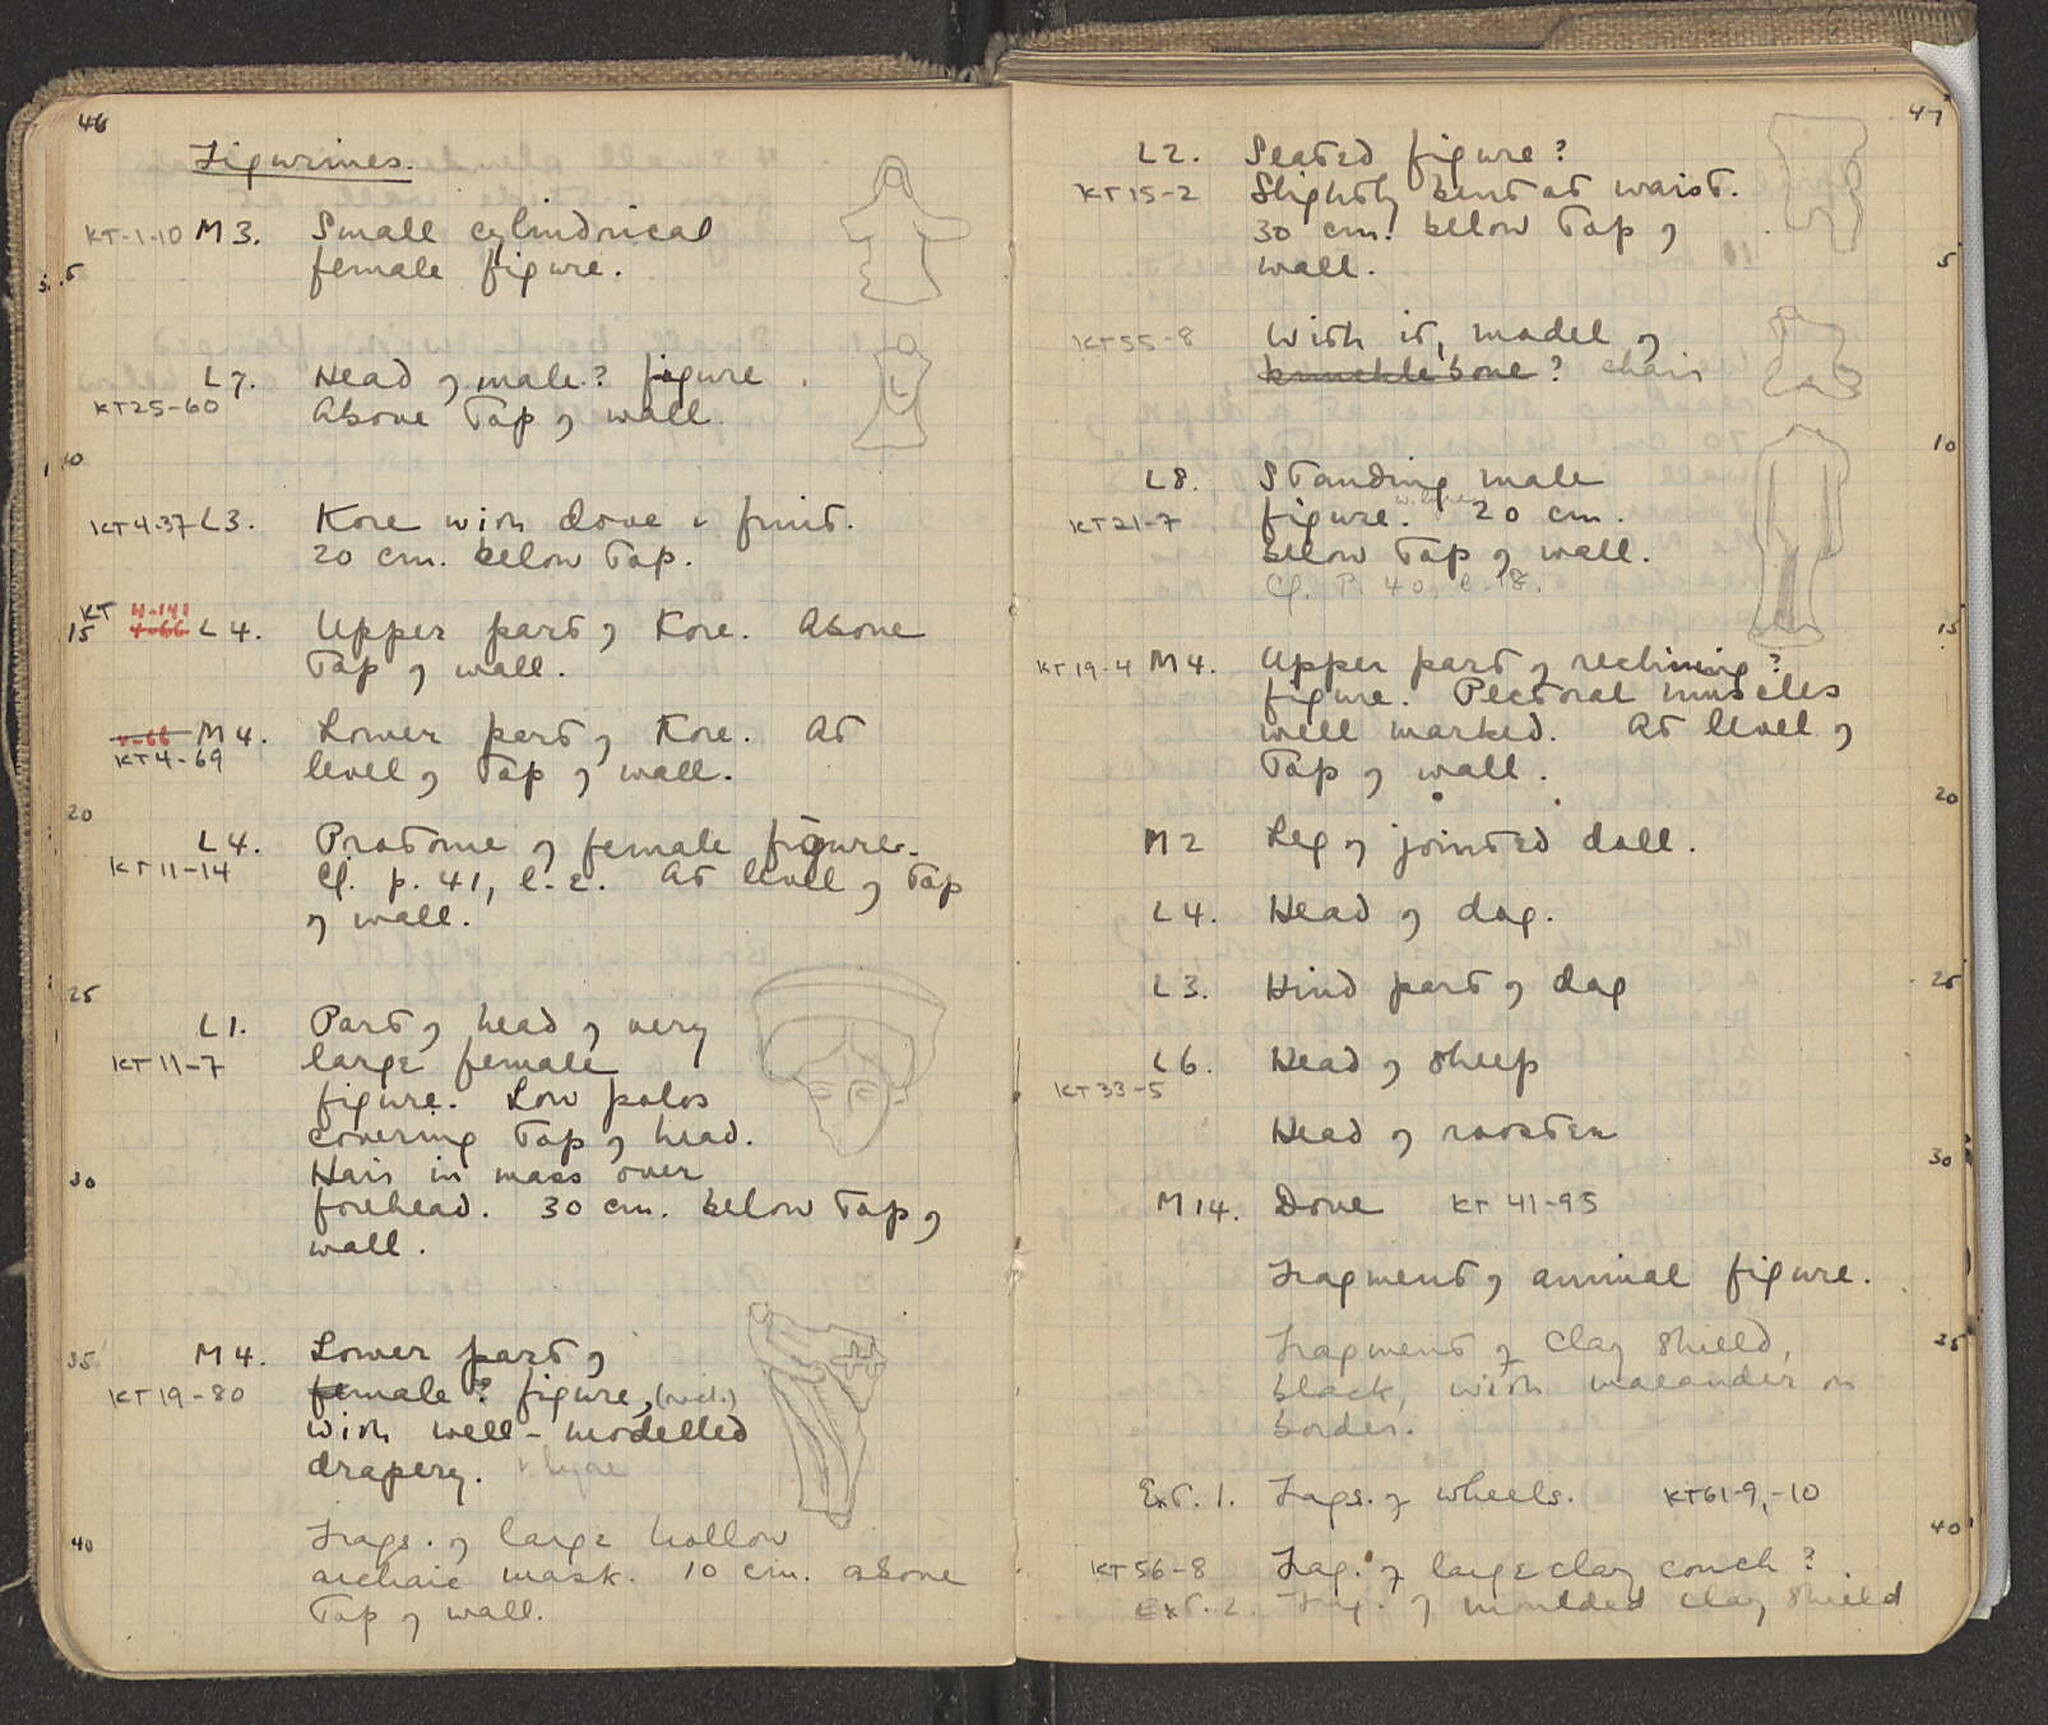 46
Figurines.
KT-1-10 M3. Small cylindrical
female figure.
5
L7. Head of male? figure
KT25-60 Above top of wall
10
KT4-37 L3. Kore with dove & fruit.
20 cm. below top.
KT 4-141
15 4-66 L4. Upper part of Kore. Above
top of wall.
4-66 M4. Lower part of Kore. At
KT4-69 level of top of wall.
20
L4. Protome of female figure.
KT11-14 Cf. p. 41, l. 2. At level of top
of wall.
25
L1. Part of head of very
KT11-7 large female
figure. Low polos
covering top of head.
30 Hair in mass over
forehead. 30 cm. below top of
wall.
35 M4. Lower part of
KT19-80 female? figure,
with well-modelled
drapery. & lyre
40 Frags. of large hollow
archaic mask. 10 cm. above
top of wall.
47
L2. Seated figure?
KT15-2 Slightly bent at waist.
30 cm. below top of
wall. 5
KT55-8 With it, model of
knucklebone? chair
10
L8. Standing male
KT21-7 figure. 20 cm.
below top of wall.
Cf. P. 40, l. 18.
15
KT19-4 M4. Upper part of reclining?
figure. Pectoral muscles
well marked. At level of
top of wall.
20
M2 Leg of jointed doll.
L4. Head of dog.
L3. Hind part of dog 25
L6. Head of sheep
KT33-5
Head of rooster
30
M14. Dove KT 41-95
Fragment of animal figure.
Fragment of clay shield, 35
black, with maeander on
border.
Ext. 1. Fags. of wheels. KT61-9,-10
40
KT56-8 Frag. of large clay couch?
Ext. 2. Frag. of moulded clay shield